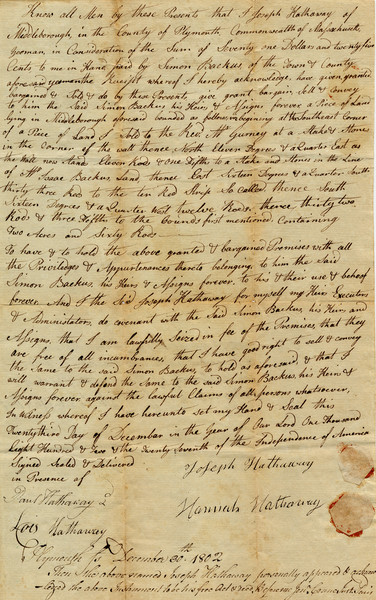 Know all Men by these Presents that I Joseph Hathaway of
Middleborough, in the County of Plymouth, Commonwealth of Massachusetts,
Yeoman, in Consideration of the Sum of Seventy one Dollars and twenty two
Cents to me in Hand paid by Simon Backus of the Town & County
aforesaid yeoman the Receipt whereof I hereby acknowledge, have given granted
bargained & Sold & do by these Presents, give grant bargain Sell & Convey
to him the Said Simon Backus his Heirs & Assigns forever a Piece of Land
lying in Middleborough aforesaid bounded as follows, beginning at the Southeast Corner
of a Piece of Land I Sold to the Rev. Mr. Gurney at a Stake & Stones
in the Corner of the wall thence North Eleven Degrees & a Quarter East as
the Wall now Stands Eleven Rods & one Fifth to a Stake and Stones in the Line
of Mr. Isaac Backus Land thence East Sixteen Degrees & a Quarter South
thirty three Rods to the ten Rod Strip So called thence South
Sixteen Degrees & a Quarter West twelve Rods, thence thirty two
Rods & three Fifths to the bounds first mentioned Containing
two Acres and Sixty Rods.
To have & to hold the above granted & bargained Premises with all
the Priviledges & Appurtenances thereto belonging, to him the Said
Simon Backus, his Heirs & Assigns forever, to his & their use & behoof
forever. And I the Sd Joseph Hathaway for myself my Heirs Executors
& Administrators, do covenant with the Said Simon Backus, his Heirs and
Assigns, that I am lawfully Seized in fee of the Premises, that they
are free of all incumbrances, that I have good right to sell & convey
the Same to the said Simon Backus, to hold as aforesaid, & that I
will warrant & defend the Same to the said Simon Backus, his Heirs &
Assigns forever, against the lawful Claims of all persons whatsoever.
In witness whereof I have hereunto set my Hand & Seal this
Twenty third Day of December in the Year of our Lord One Thousand
Eight Hundred & Two & the Twenty Seventh of the Independence of America
Signed Sealed & Delivered
in Presence of
Joseph Hathaway
Paul Hathaway 2
Hannah Hathaway
Lois Hathaway
Plymouth Ss December 30th 1802
Then the above named Joseph Hathaway personally appeared & acknow
ledged the above Instrument to be his free Act & Deed